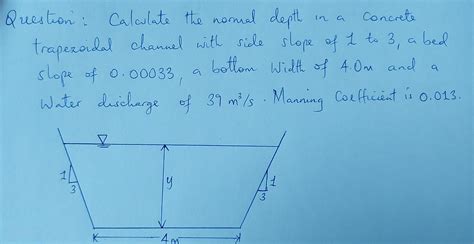 Question: Calculate the normal depth in a concrete
trapezoidal channel with side slope of 1 to 3, a bed
slope of 0.00033, a bottom width of 4.0m and a
Water discharge of 39 m³/s. Manning Coefficient is 0.013.
1
3
y
1
3
4m